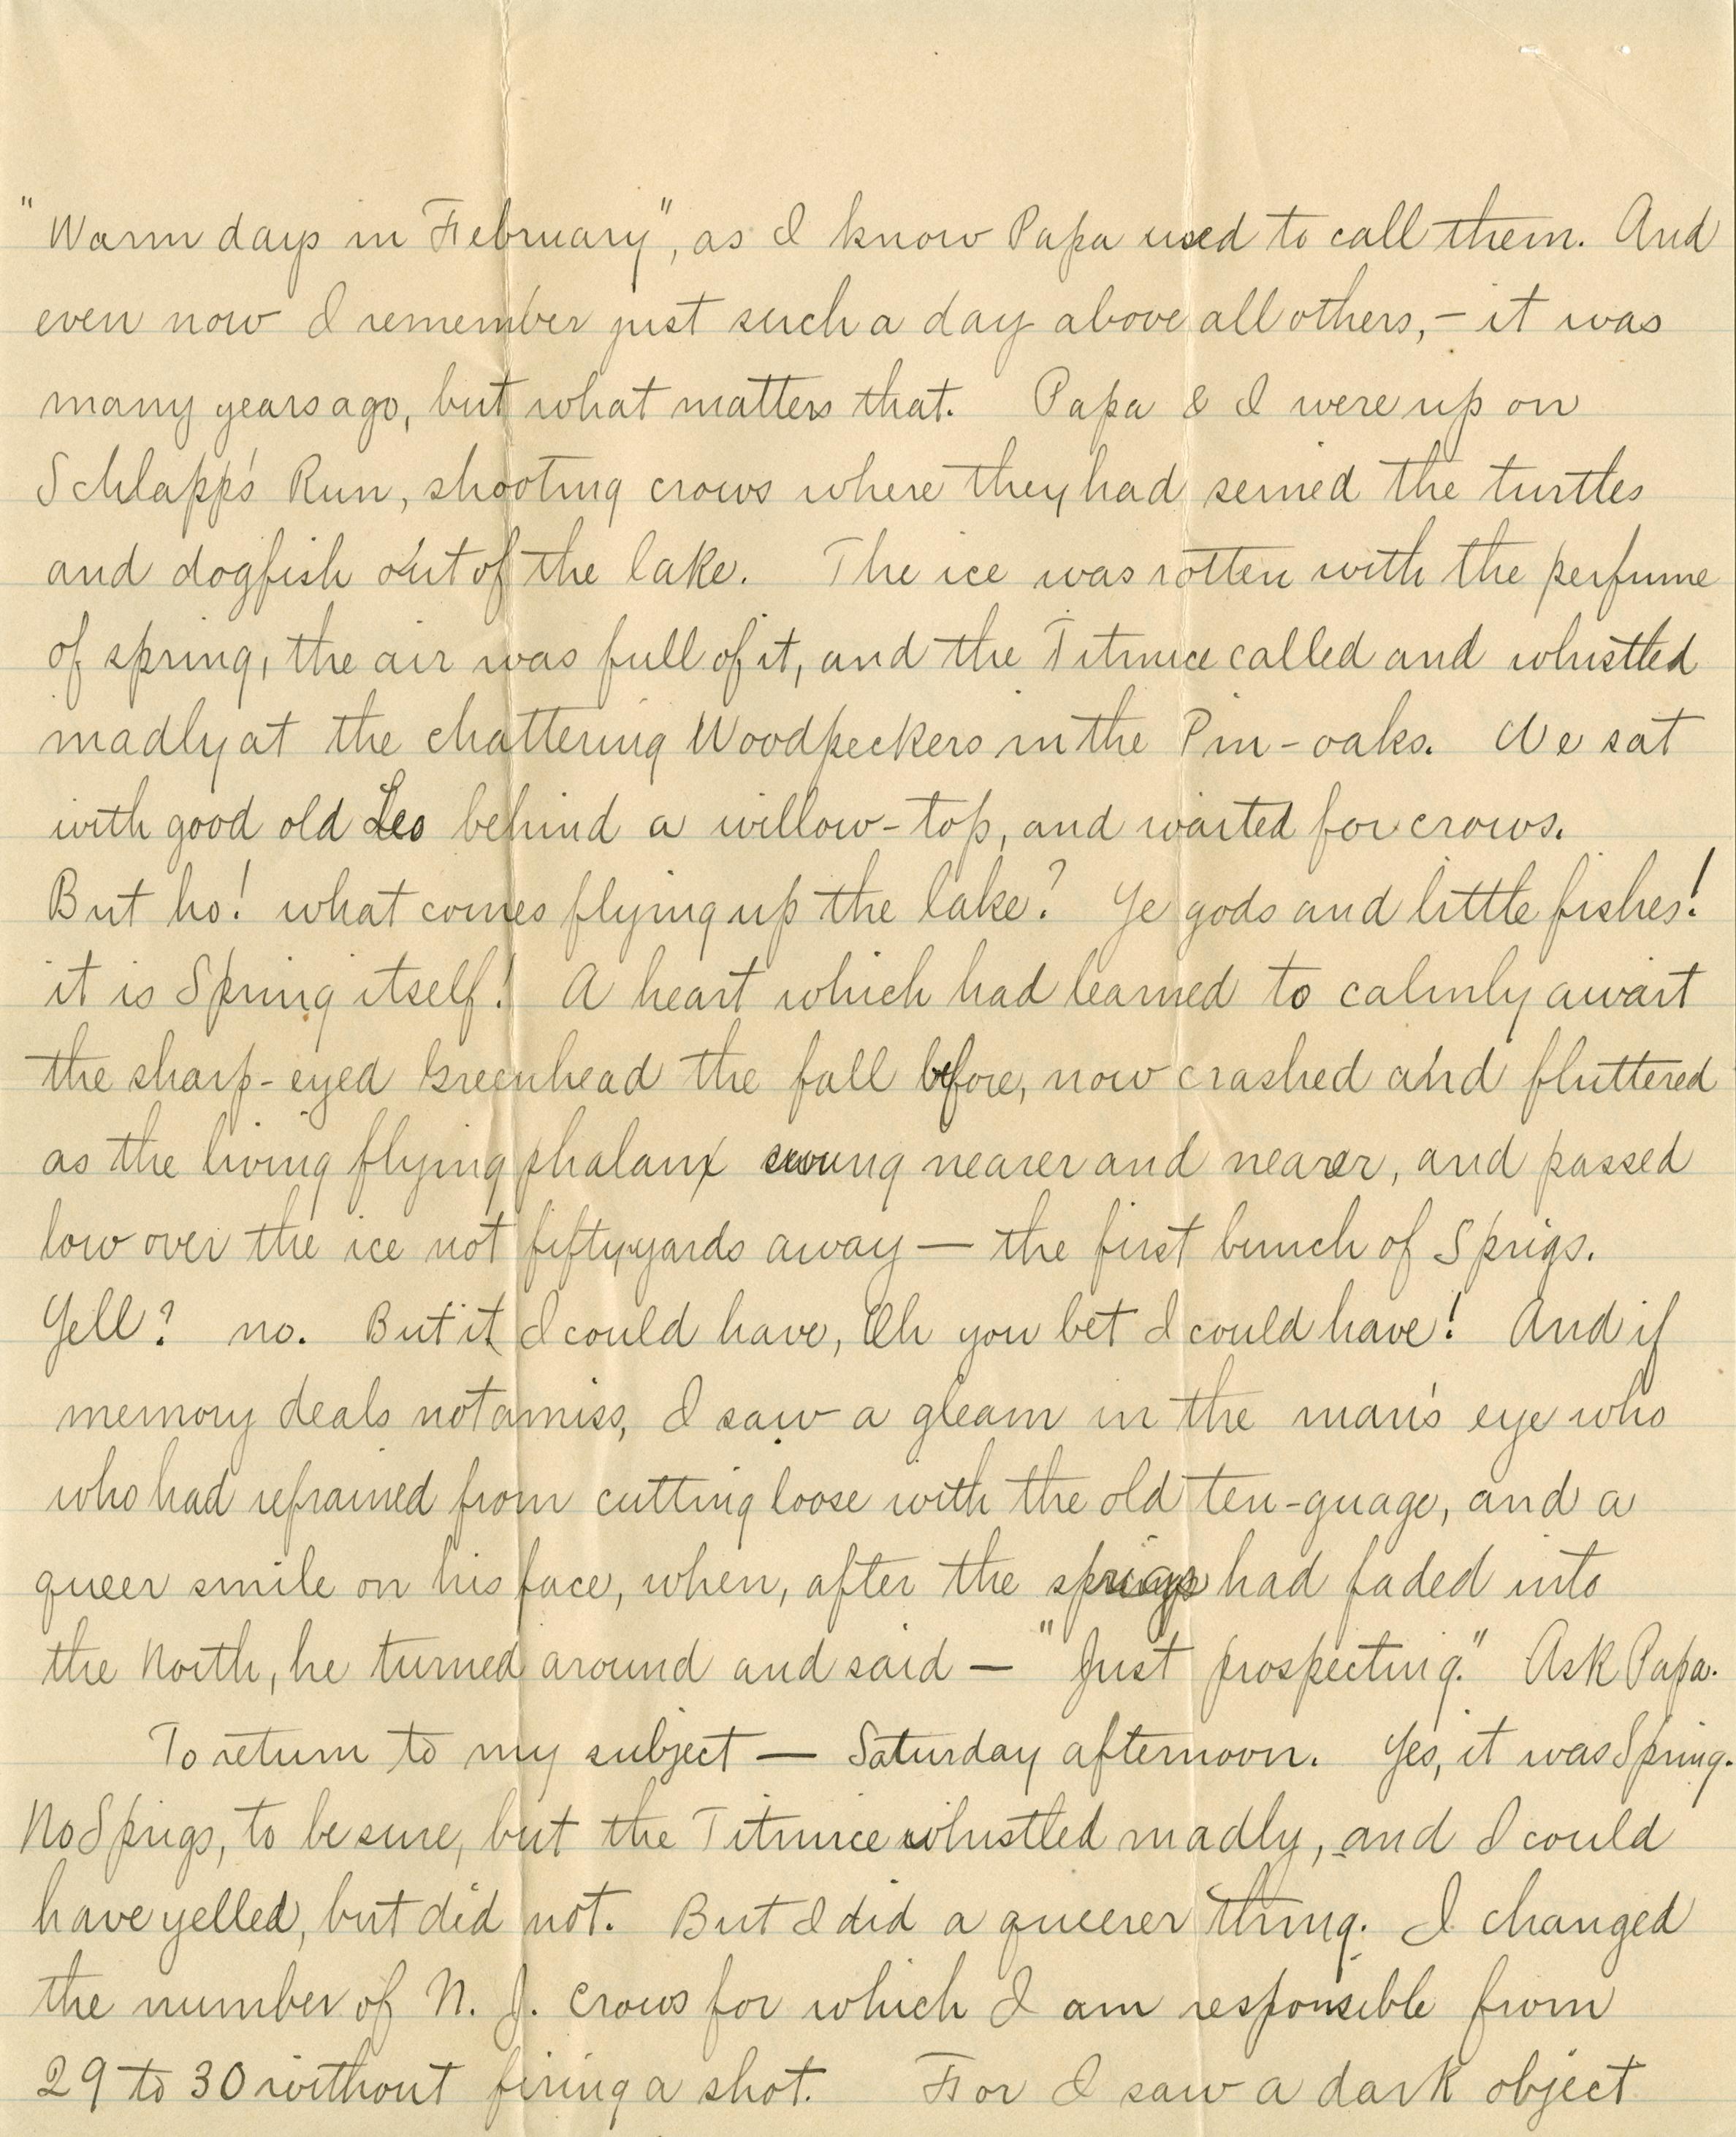 "Warm days in February", as I know Papa used to call them. And
even now I remember just such a day above all others, – it was
many years ago, but what matters that. Papa & I were up on
Schlapp's Run, shooting crows where they had seined the turtles
and dogfish out of the lake. The ice was rotten with the perfume
of spring, the air was full of it, and the Titmice called and whistled
madly at the chattering Woodpeckers in the Pin-oaks. We sat
with good old Leo behind a willow-top, and waited for crows.
But ho! what comes flying up the lake? Ye gods and little fishes!
it is Spring itself! A heart which had learned to calmly await
the sharp-eyed Greenhead the fall before, now crashed and fluttered
as the living flying phalanx swung nearer and nearer, and passed
low over the ice not fifty yards away — the first bunch of Sprigs.
Yell? no. But it I could have, Oh you bet I could have! And if
memory deals not amiss, I saw a gleam in the man's eye who
who had refrained from cutting loose with the old ten-guage, and a
queer smile on his face, when, after the sprigs had faded into
the North, he turned around and said — "Just prospecting." Ask Papa.
To return to my subject — Saturday afternoon. Yes, it was Spring.
No Sprigs, to be sure, but the Titmice whistled madly, and I could
have yelled, but did not. But I did a queerer thing. I changed
the number of N. J. Crows for which I am responsible from
29 to 30 without firing a shot. For I saw a dark object